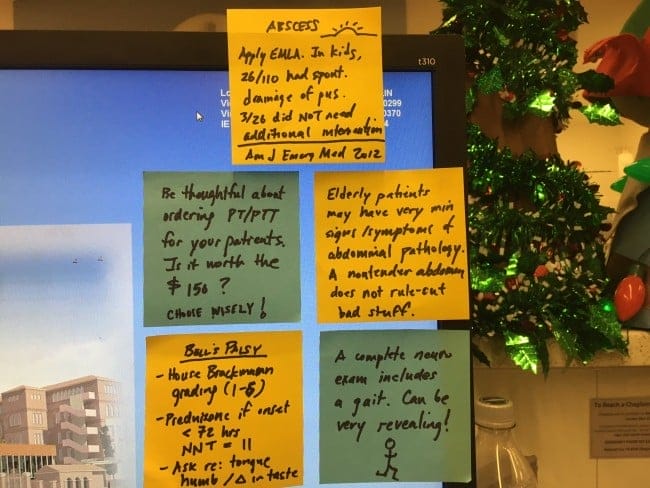 ABSCESS
Apply EMLA. In kids,
26/110 had spont.
drainage of pus.
3/26 did NOT need
additional intervention
Am J Emerg Med 2012
t310
Lo
IN
Vi
0299
Vi
0370
IE
4
Be thoughtful about
ordering PT/PTT
for your patients.
Is it worth the
$ 150 ?
CHOOSE WISELY!
Elderly patients
may have very min
signs/symptoms of
abdominal pathology.
A nontender abdomen
does not rule-out
bad stuff.
Bell's Palsy
- House Brackmann
grading (1-6)
- Prednisone if onset
< 72 hrs
NNT = 11
- Ask re: tongue
numb / Δ in taste
A complete neuro
exam includes
a gait. Can be
very revealing!
To Reach a Chaplain